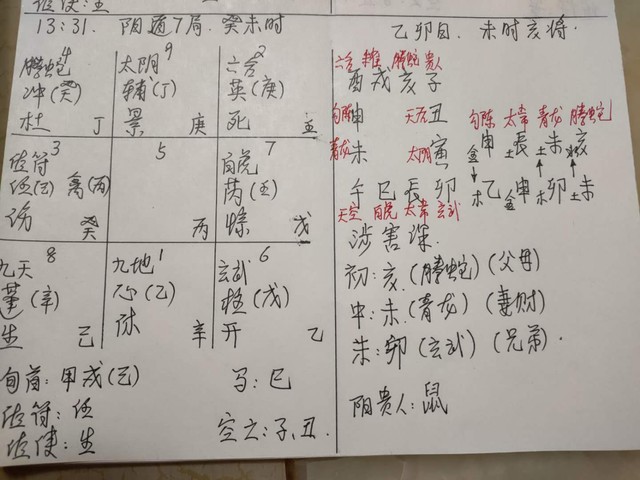 值使:生
13:31. 阴遁7局. 癸未时
螣蛇 4
冲(癸)
杜 丁
太阴 9
辅(丁)
景 庚
六合 2
英(庚)
死 壬
值符 3
任(己) 禽(丙)
伤 癸
5
丙
白虎 7
芮(壬)
惊 戊
九天 8
蓬(辛)
生 己
九地 1
心(乙)
休 辛
玄武 6
柱(戊)
开 乙
旬首:甲戌(己) 马:巳
值符:任
值使:生 空亡:子、丑.
乙卯日. 未时亥将.
六合 朱雀 螣蛇 贵人
酉 戌 亥 子
勾陈 申 天后 丑
青龙 未 太阴 寅
午 巳 辰 卯
天空 白虎 太常 玄武
勾陈 太常 青龙 螣蛇
金 申 土 辰 未 水 亥
木 乙 金 申 木 卯 土 未
涉害深.
初:亥.(螣蛇)(父母)
中:未.(青龙)(妻财)
末:卯(玄武)(兄弟).
阴贵人:鼠